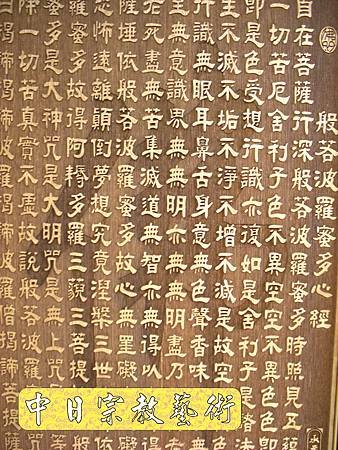 般若波羅蜜多心經
自在菩薩行深般若波羅蜜多時照見五蘊
一切苦厄舍利子色不異空空不異色色即
即是色受想行識亦復如是舍利子是諸法
生不滅不垢不淨不增不減是故空中
行識無眼耳鼻舌身意無色聲香味
無意識界無無明亦無無明盡乃
老死盡無苦集滅道無智亦無得以
薩埵依般若波羅蜜多故心無罣礙
恐怖遠離顛倒夢想究竟涅槃三世
羅蜜多故得阿耨多羅三藐三菩提
蜜多是大神咒是大明咒是無上咒
除一切苦真實不虛故說般若波羅蜜
曰揭諦揭諦波羅揭諦波羅僧揭諦菩提薩
中日宗教藝術